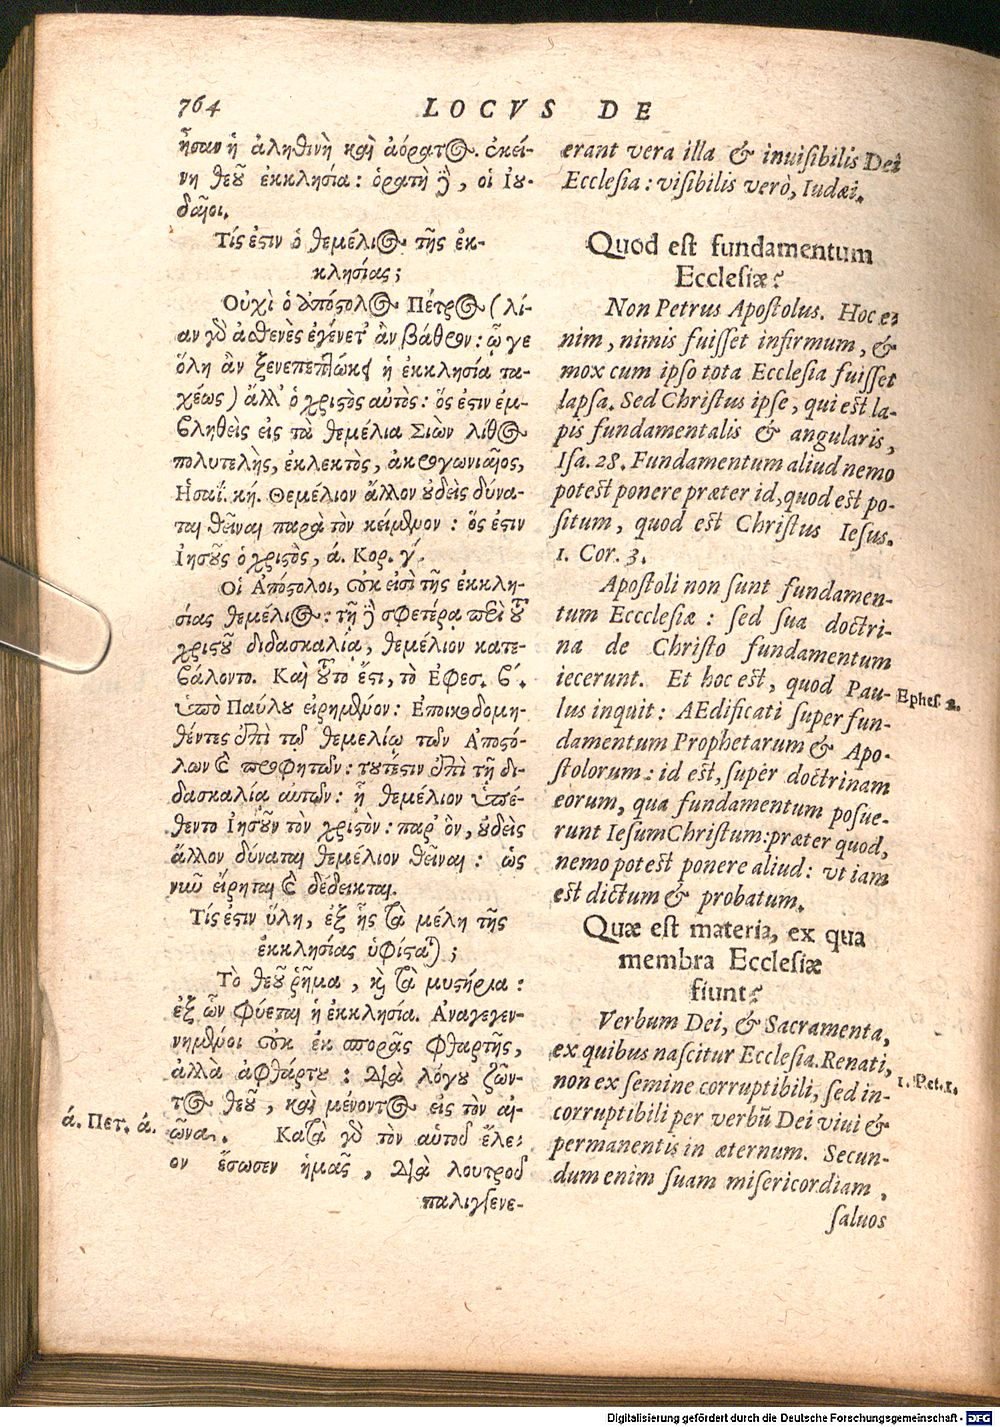 764
LOCVS DE
ἦσαν ἡ ἀληθινὴ καὶ ἀόρατος ἐκεί-
νη θεοῦ ἐκκλησία: ὁρατὴ δὲ, οἱ Ἰου-
δαῖοι.
Τίς ἐστιν ὁ θεμέλιος τῆς ἐκ-
κλησίας;
Οὐχὶ ὁ ἀπόστολος Πέτρος (λί-
αν γὸ ἀσθενὲς ἐγένετ' ἂν βάθρον: ᾧ γε
ὅλη ἂν ξενεπεπτώκει ἡ ἐκκλησία τα-
χέως) ἀλλ' ὁ χριστὸς αὐτὸς: ὅς ἐστιν ἐμ-
βληθεὶς εἰς τὰ θεμέλια Σιὼν λίθος
πολυτελὴς, ἐκλεκτὸς, ἀκρογωνιαῖος,
Ἡσαΐ. κή. Θεμέλιον ἄλλον οὐδεὶς δύνα-
ται θεῖναι παρὰ τὸν κείμενον: ὅς ἐστιν
Ἰησοῦς ὁ χριστὸς, ά. Κορ. γ´.
Οἱ Ἀπόστολοι, οὐκ εἰσὶ τῆς ἐκκλη-
σίας θεμέλιος: τῇ δὲ σφετέρᾳ περὶ τοῦ
χριστοῦ διδασκαλίᾳ, θεμέλιον κατε-
βάλοντο. Καὶ τοῦτο ἔστι, τὸ Ἐφεσ. β´.
ὑπὸ Παύλου εἰρημένον: Ἐποικοδομη-
θέντες ἐπὶ τῷ θεμελίῳ τῶν Ἀποστό-
λων καὶ προφητῶν: τουτέστιν ἐπὶ τῇ δι-
δασκαλίᾳ αὐτῶν: ᾗ θεμέλιον ὑπέ-
θεντο Ἰησοῦν τὸν χριστὸν: παρ' ὃν, οὐδεὶς
ἄλλον δύναται θεμέλιον θεῖναι: ὡς
νιῶ εἴρηται καὶ δέδεικται.
Τίς ἐστιν ὕλη, ἐξ ἧς τὰ μέλη τῆς
ἐκκλησίας ὑφίσταται;
Τὸ θεοῦ ῥῆμα, καὶ τὰ μυστήρια:
ἐξ ὧν φύεται ἡ ἐκκλησία. Ἀναγεγεν-
νημένοι οὐκ ἐκ σπορᾶς φθαρτῆς,
ἀλλὰ ἀφθάρτου: διὰ λόγου ζῶν-
τος θεοῦ, καὶ μένοντος εἰς τὸν αἰ-
ῶνα. Κατὰ γὸ τὸν αὑτοῦ ἔλε-
ον ἔσωσεν ἡμᾶς, διὰ λουτροῦ
παλιγγενε-
ά. Πετ. ά.
erant vera illa & inuisibilis Dei
Ecclesia: visibilis verò, Iudæi.
Quod est fundamentum
Ecclesiæ?
Non Petrus Apostolus. Hoc e-
nim, nimis fuisset infirmum, &
mox cum ipso tota Ecclesia fuisset
lapsa. Sed Christus ipse, qui est la-
pis fundamentalis & angularis,
Isa. 28. Fundamentum aliud nemo
potest ponere præter id, quod est po-
situm, quod est Christus Iesus.
1. Cor. 3.
Apostoli non sunt fundamen-
tum Eccclesiæ: sed sua doctri-
na de Christo fundamentum
iecerunt. Et hoc est, quod Pau-
lus inquit: AEdificati super fun-
damentum Prophetarum & Apo-
stolorum: id est, super doctrinam
eorum, qua fundamentum posue-
runt Iesum Christum: præter quod,
nemo potest ponere aliud: vt iam
est dictum & probatum.
Quæ est materia, ex qua
membra Ecclesiæ
fiunt?
Verbum Dei, & Sacramenta,
ex quibus nascitur Ecclesia. Renati,
non ex semine corruptibili, sed in-
corruptibili per verbũ Dei viui &
permanentis in æternum. Secun-
dum enim suam misericordiam,
saluos
Ephes. 2.
1. Pet. 1.
Digitalisierung gefördert durch die Deutsche Forschungsgemeinschaft - DFG